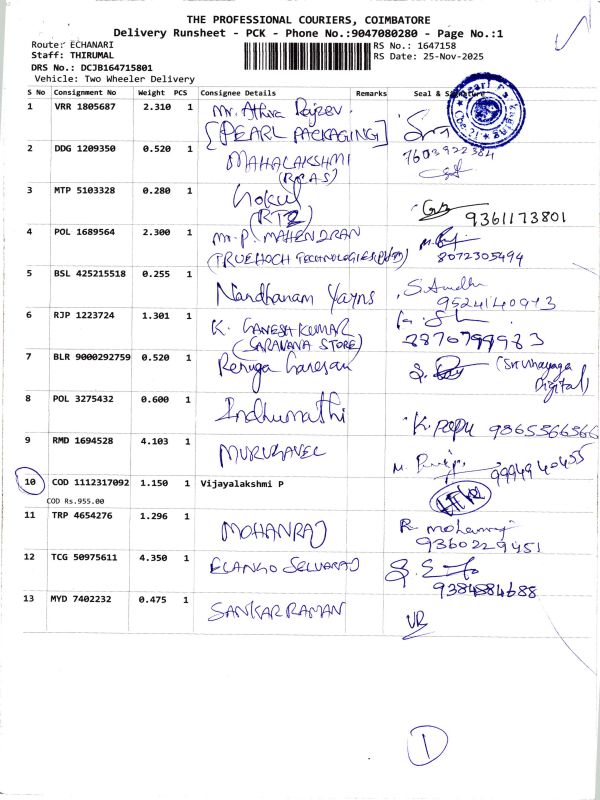 THE PROFESSIONAL COURIERS, COIMBATORE
Delivery Runsheet - PCK - Phone No.:9047080280 - Page No.:1
Route: ECHANARI
Staff: THIRUMAL
DRS No.: DCJB164715801
Vehicle: Two Wheeler Delivery
RS No.: 1647158
RS Date: 25-Nov-2025
S No Consignment No Weight PCS Consignee Details Remarks Seal & Signature
1 VRR 1805687 2.310 1 Mr. Athira Rajeev
[PEARL PACKAGING]
2 DDG 1209350 0.520 1 MAHALAKSHMI 7603922384
3 MTP 5103328 0.280 1 Gokul 9361173801
4 POL 1689564 2.300 1 Mr. P. MAHENDRAN
(TRUEHOCH TECHNOLOGIES 8072305494
5 BSL 425215518 0.255 1 Nandhanam Yayns
6 RJP 1223724 1.301 1 K. GANESH KUMAR
(SARAVANA STORE)
7 BLR 9000292759 0.520 1 Renuga Ganesan (Sri Vinayaga
Digital)
8 POL 3275432 0.600 1 Indhumathi K. Papu 9865366366
9 RMD 1694528 4.103 1 MURUGAVEL 9994940455
10 COD 1112317092 1.150 1 Vijayalakshmi P
COD Rs.955.00
11 TRP 4654276 1.296 1 MOHANRAJ R. mohanraj
9360229451
12 TCG 50975611 4.350 1 ELANGO SELVARAJ
13 MYD 7402232 0.475 1 SANKAR RAMAN VR
1